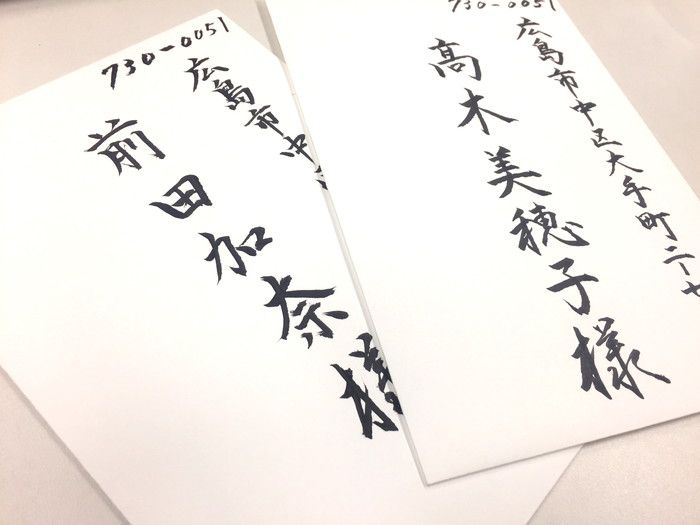 730-0051
広島市中
前田加奈様
730-0051
広島市中区大手町二丁
高木美穂子様